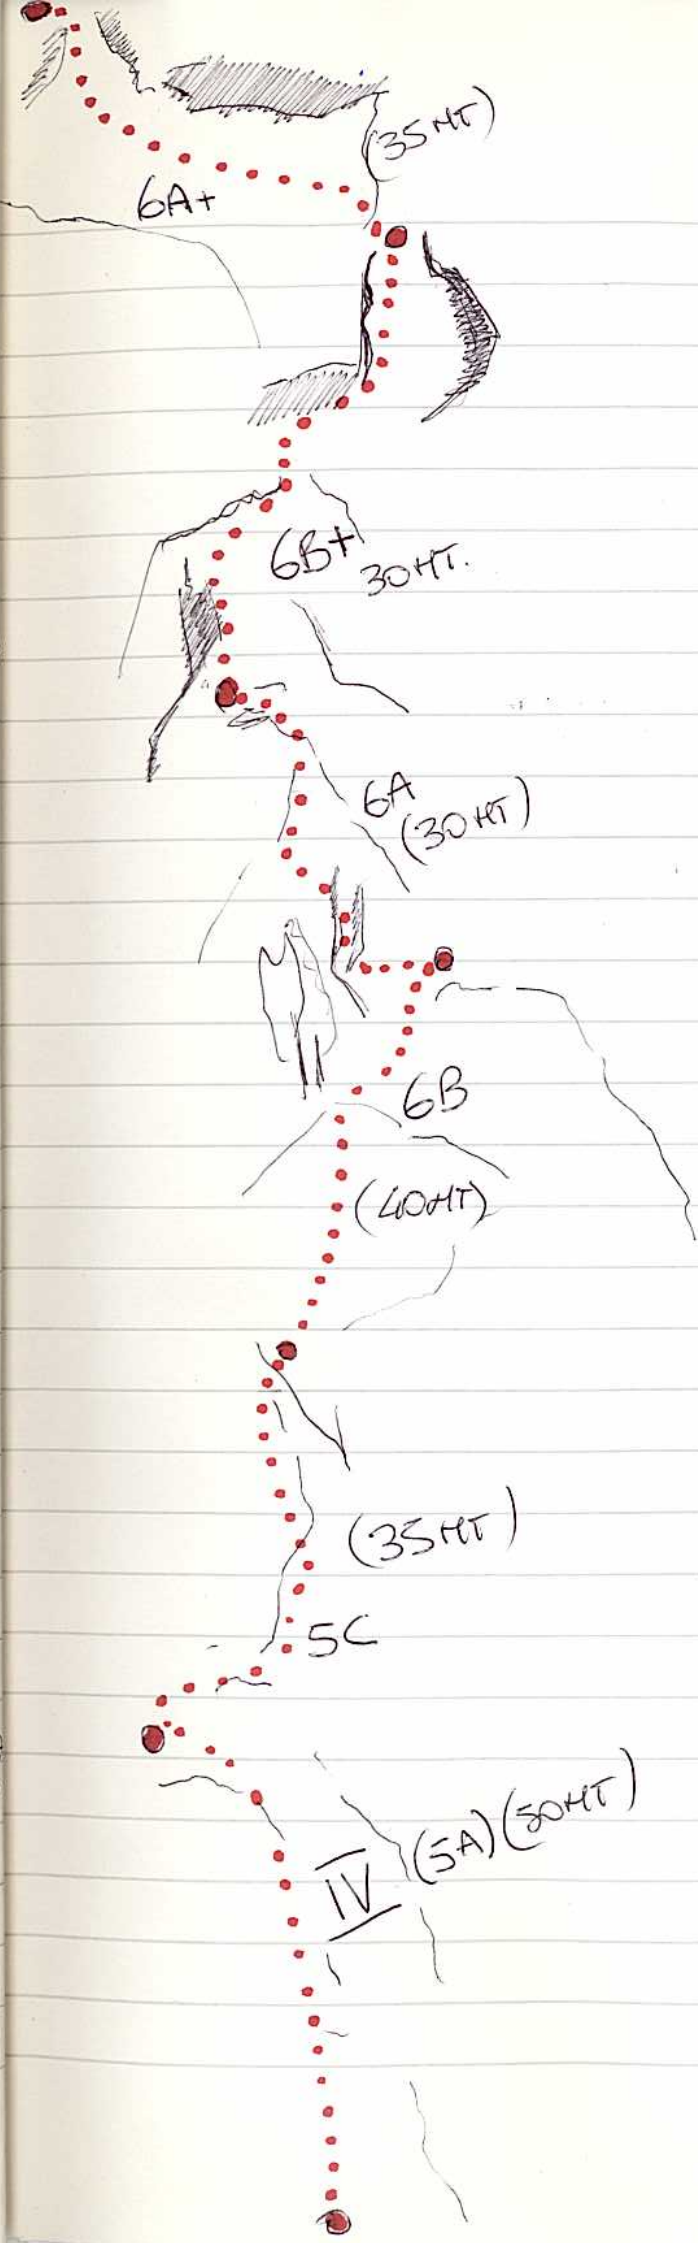 (35MT)
6A+
6B+
30MT.
6A
(30MT)
6B
(40MT)
(35MT)
5C
IV (5A) (50MT)